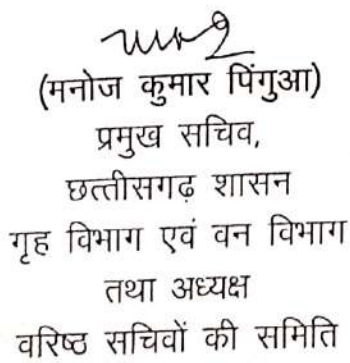 (मनोज कुमार पिंगुआ)
प्रमुख सचिव,
छत्तीसगढ़ शासन
गृह विभाग एवं वन विभाग
तथा अध्यक्ष
वरिष्ठ सचिवों की समिति